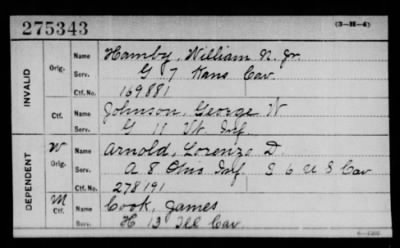 275343 (3-H-4)
INVALID
Orig. Name Hamby, William N. Jr.
Serv. G 7 Kans Cav.
Ctf. No. 169881
Ctf. Name Johnson, George W
Serv. G 11 Vt. Inf.
DEPENDENT
W Orig. Name Arnold, Lorenzo D.
Serv. A 8 Ohio Inf S 6 U S Cav
Ctf. No. 278191
M Ctf. Name Cook, James
Serv. H 13 Ill Cav.